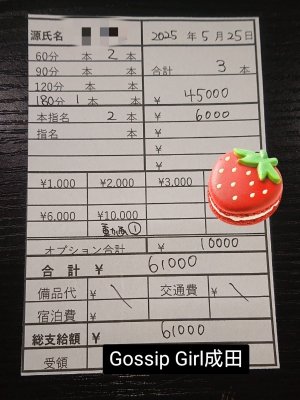 源氏名 2025年5月25日
60分 本 2 本
90分 本 本 合計 3 本
120分 本 本
180分 1 本 本 ¥ 45000
本指名 2 本 ¥ 6000
指名 本 ¥
¥
¥
¥1,000 ¥2,000 ¥3,000
¥6,000 ¥10,000
動画①
オプション合計 ¥ 10000
合計 ¥ 61000
備品代 ¥ \ 交通費 ¥ \
宿泊費 ¥
総支給額 ¥ 61000
受領
Gossip Girl成田